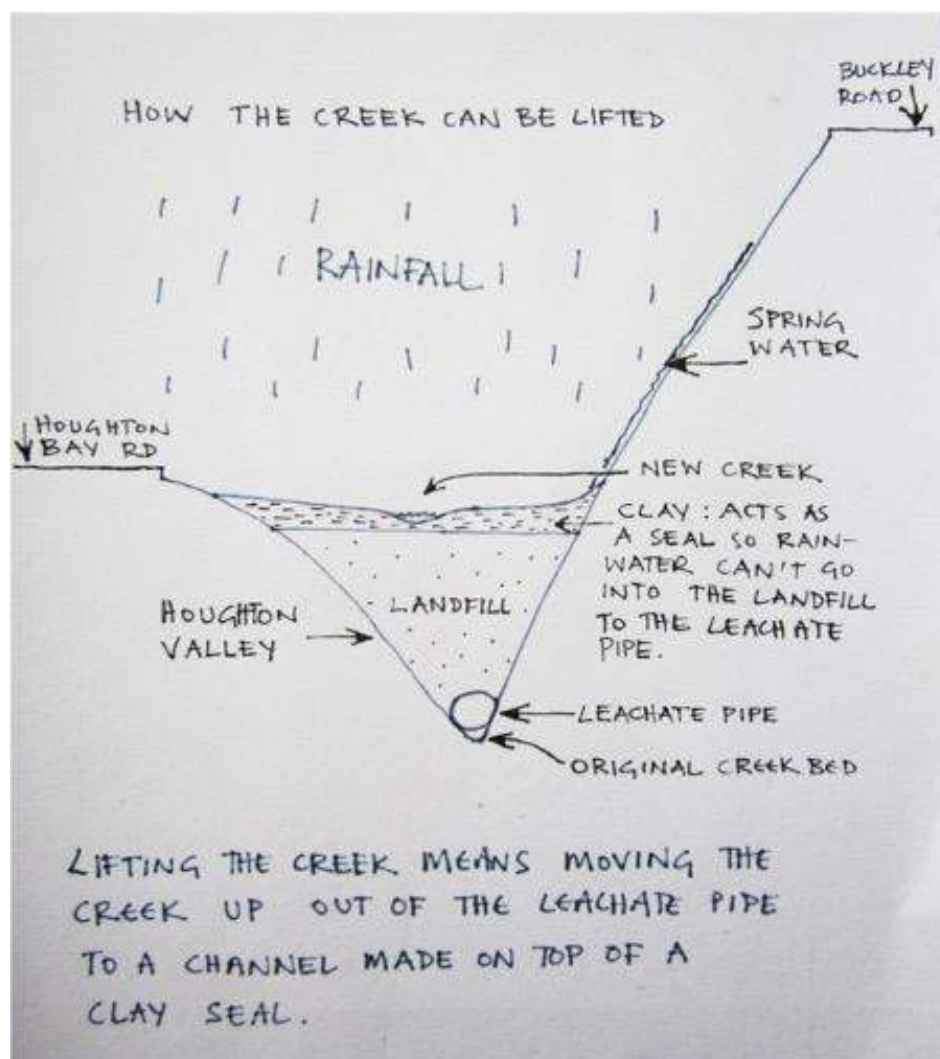 BUCKLEY
ROAD
HOW THE CREEK CAN BE LIFTED
RAINFALL
SPRING
WATER
HOUGHTON
BAY RD
NEW CREEK
CLAY: ACTS AS
A SEAL SO RAIN-
WATER CAN'T GO
INTO THE LANDFILL
TO THE LEACHATE
PIPE.
LANDFILL
HOUGHTON
VALLEY
LEACHATE PIPE
ORIGINAL CREEK BED
LIFTING THE CREEK MEANS MOVING THE
CREEK UP OUT OF THE LEACHATE PIPE
TO A CHANNEL MADE ON TOP OF A
CLAY SEAL.